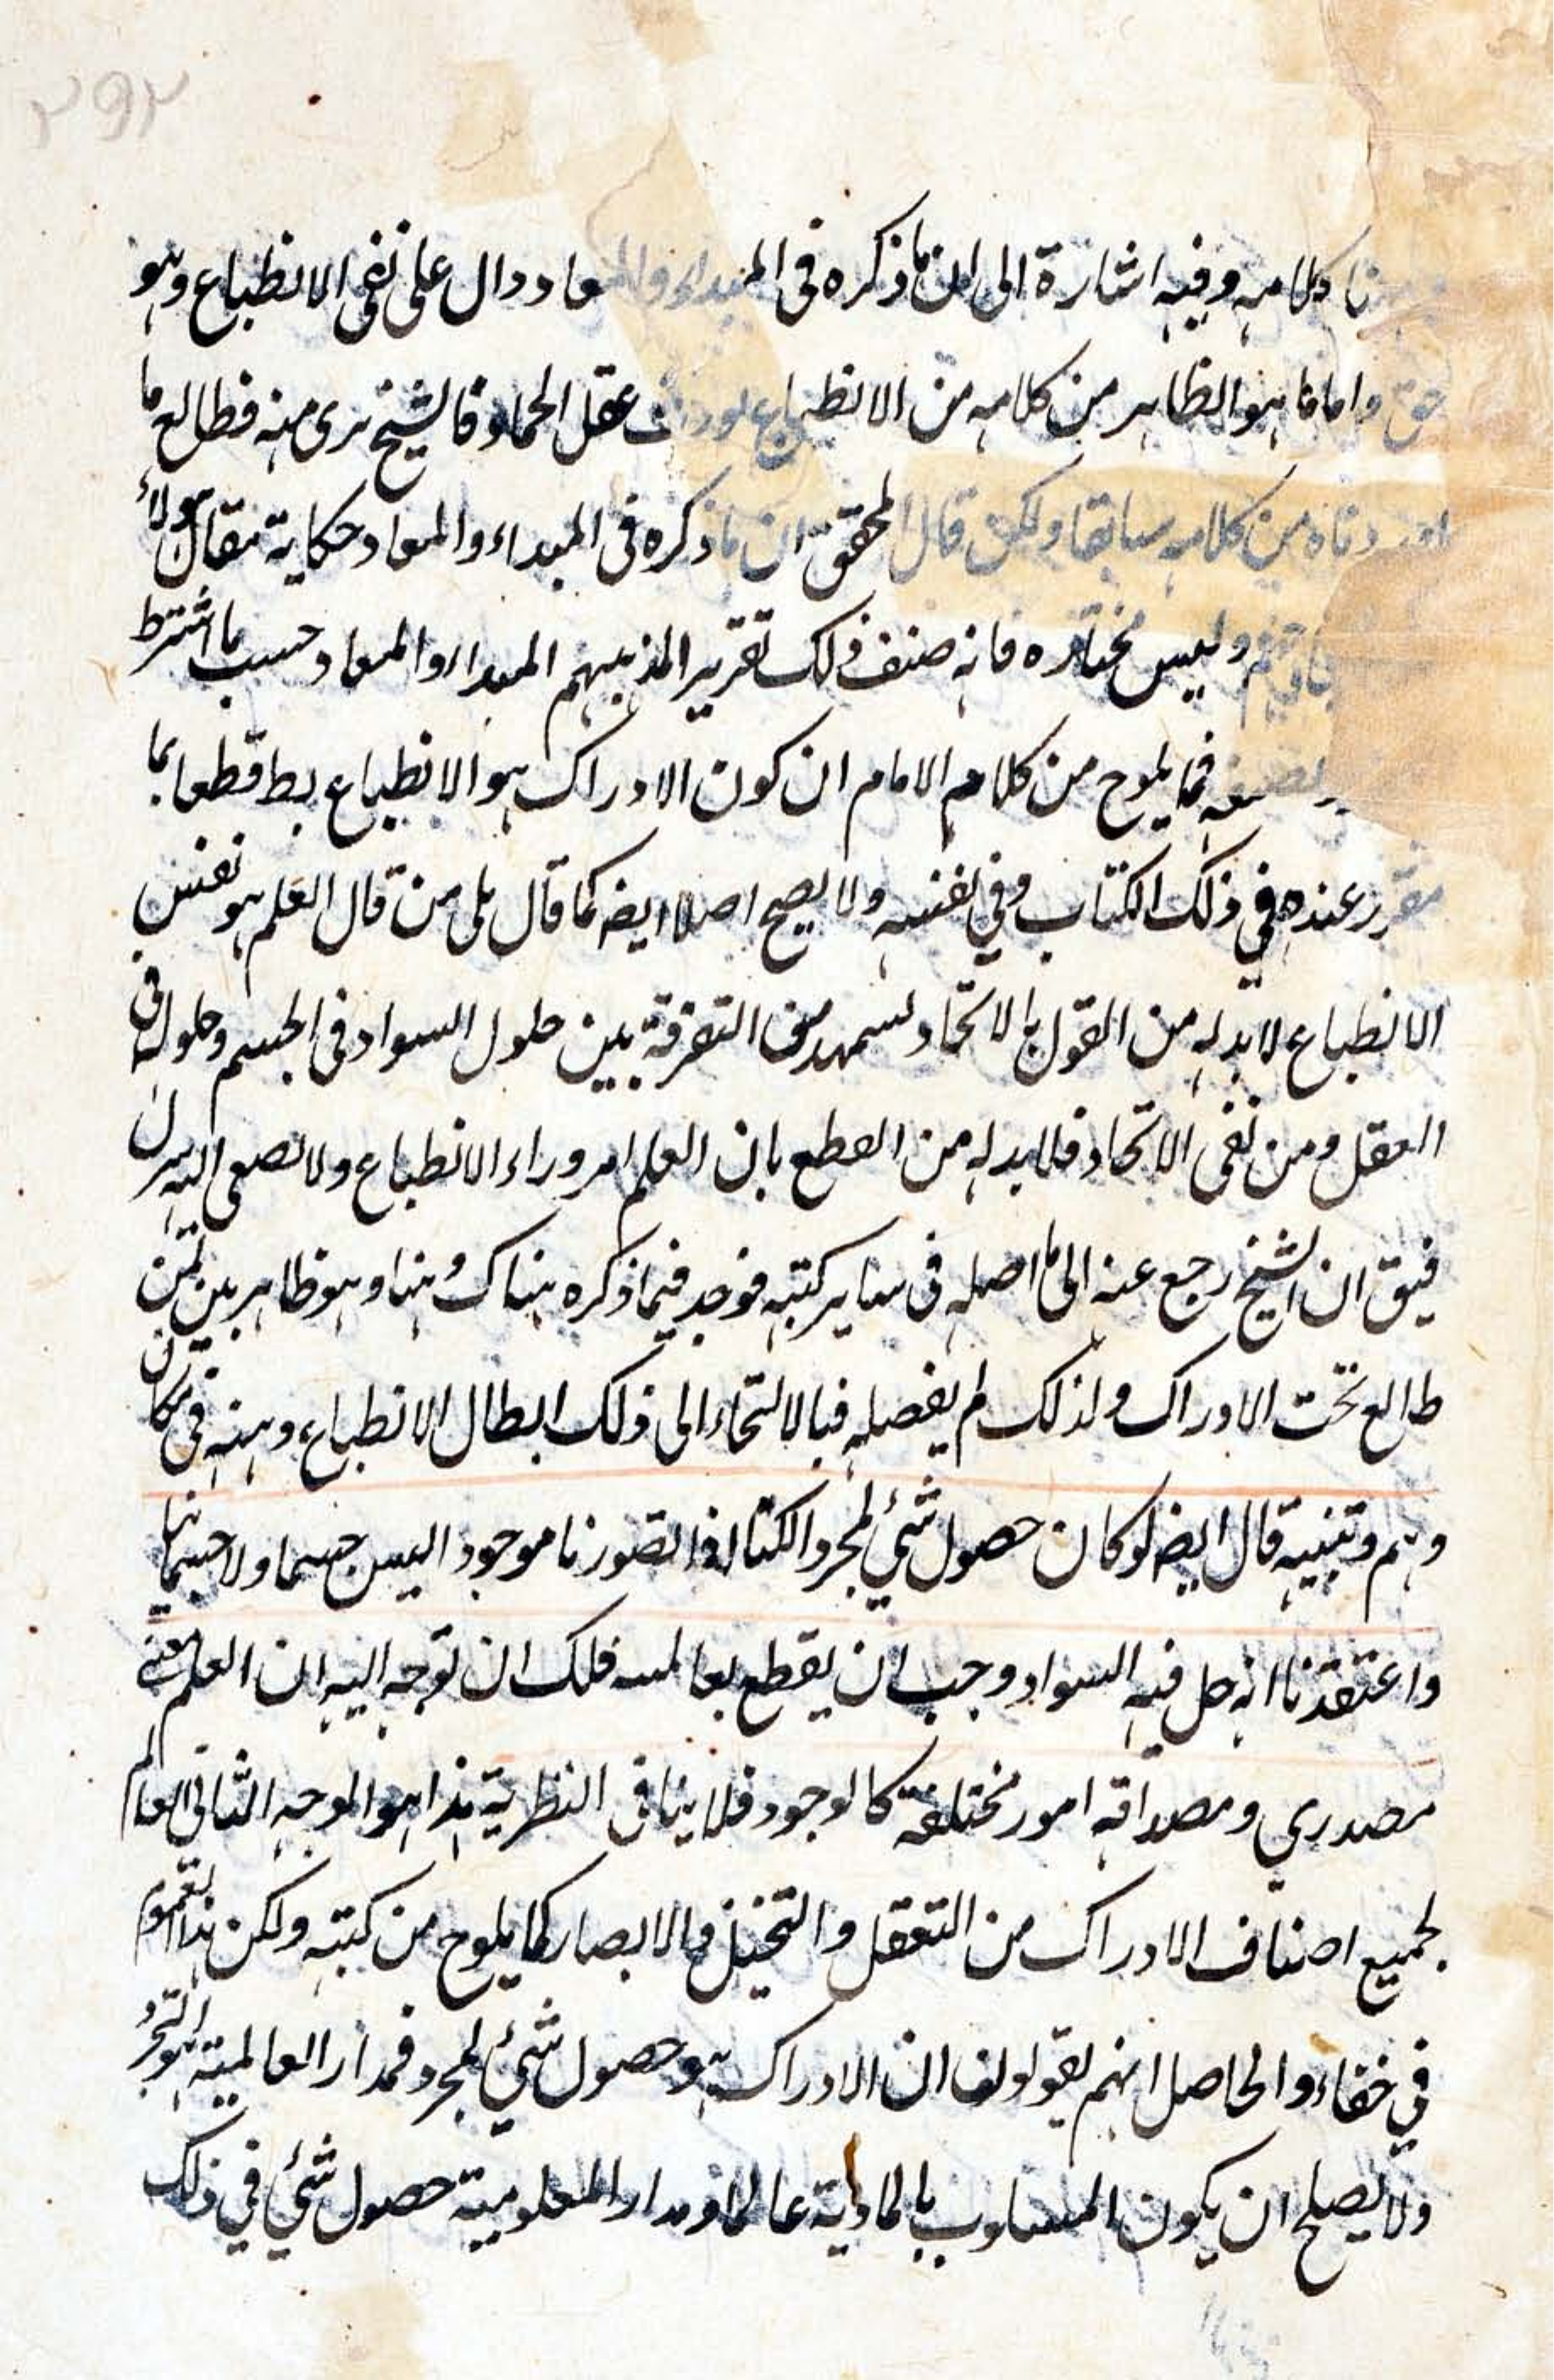 ٢٩٢
كلامه وفيه اشارة الى ان ما ذكره فى المبداء والمعاد دال على نفى الانطباع وهو
حق واما ما هو الظاهر من كلامه من الانطباع عقل الجماد فالشيخ برى منه فطالع ما
من كلامه سابقا ولكن قال المحقق ان ما ذكره فى المبداء والمعاد حكاية مقال هولاء
وليس مختاره فانه صنف ذلك تقرير المذهبهم المبداء والمعاد حسب ما اشترط
فما يلوح من كلام الامام ان كون الادراك هو الانطباع بط قطعا بما
مقرر عنده فى ذلك الكتاب وفي نفسه ولا يصح اصلا ايضه كما قال بلى من قال العلم هو نفس
الانطباع لا بد له من القول بالاتحاد التفرقة بين حلول السواد فى الجسم وحلوله فى
العقل ومن نفى الاتحاد فلا بد له من القطع بان العلم امر وراء الانطباع ولا
فيق ان الشيخ رجع عنه الى ما اصله فى ساير كتبه فوجد فيما ذكره هناك وهنا وهو ظاهر بين لمن
طالع تحت الادراك ولذلك لم يفصله فبالالتجاء الى ذلك ابطال الانطباع وهنه فى مكان
وهم وتنبيه قال ايضه لو كان حصول شئي لمجرد الكنا اذا تصورنا موجود اليس جسما ولا جسمانيا
واعتقدنا انه حل فيه السواد وجب ان يقطع فلك ان توجه اليه ان العلم معنى
مصدري ومصداقه امور مختلفة كالوجود فلا ينافى النظرية هذا هو الوجه الثانى العام
لجميع اصناف الادراك من التعقل والتخيل والابصار كما يلوح من كتبه ولكن هذا العموم
في خفاء والحاصل انهم يقولون ان الادراك هو حصول شئي لمجرد فمدار العالمية هو التجرد
ولا يصلح ان يكون المسلوب بالمادية عالما ومدار المعلومية حصول شئي في ذلك